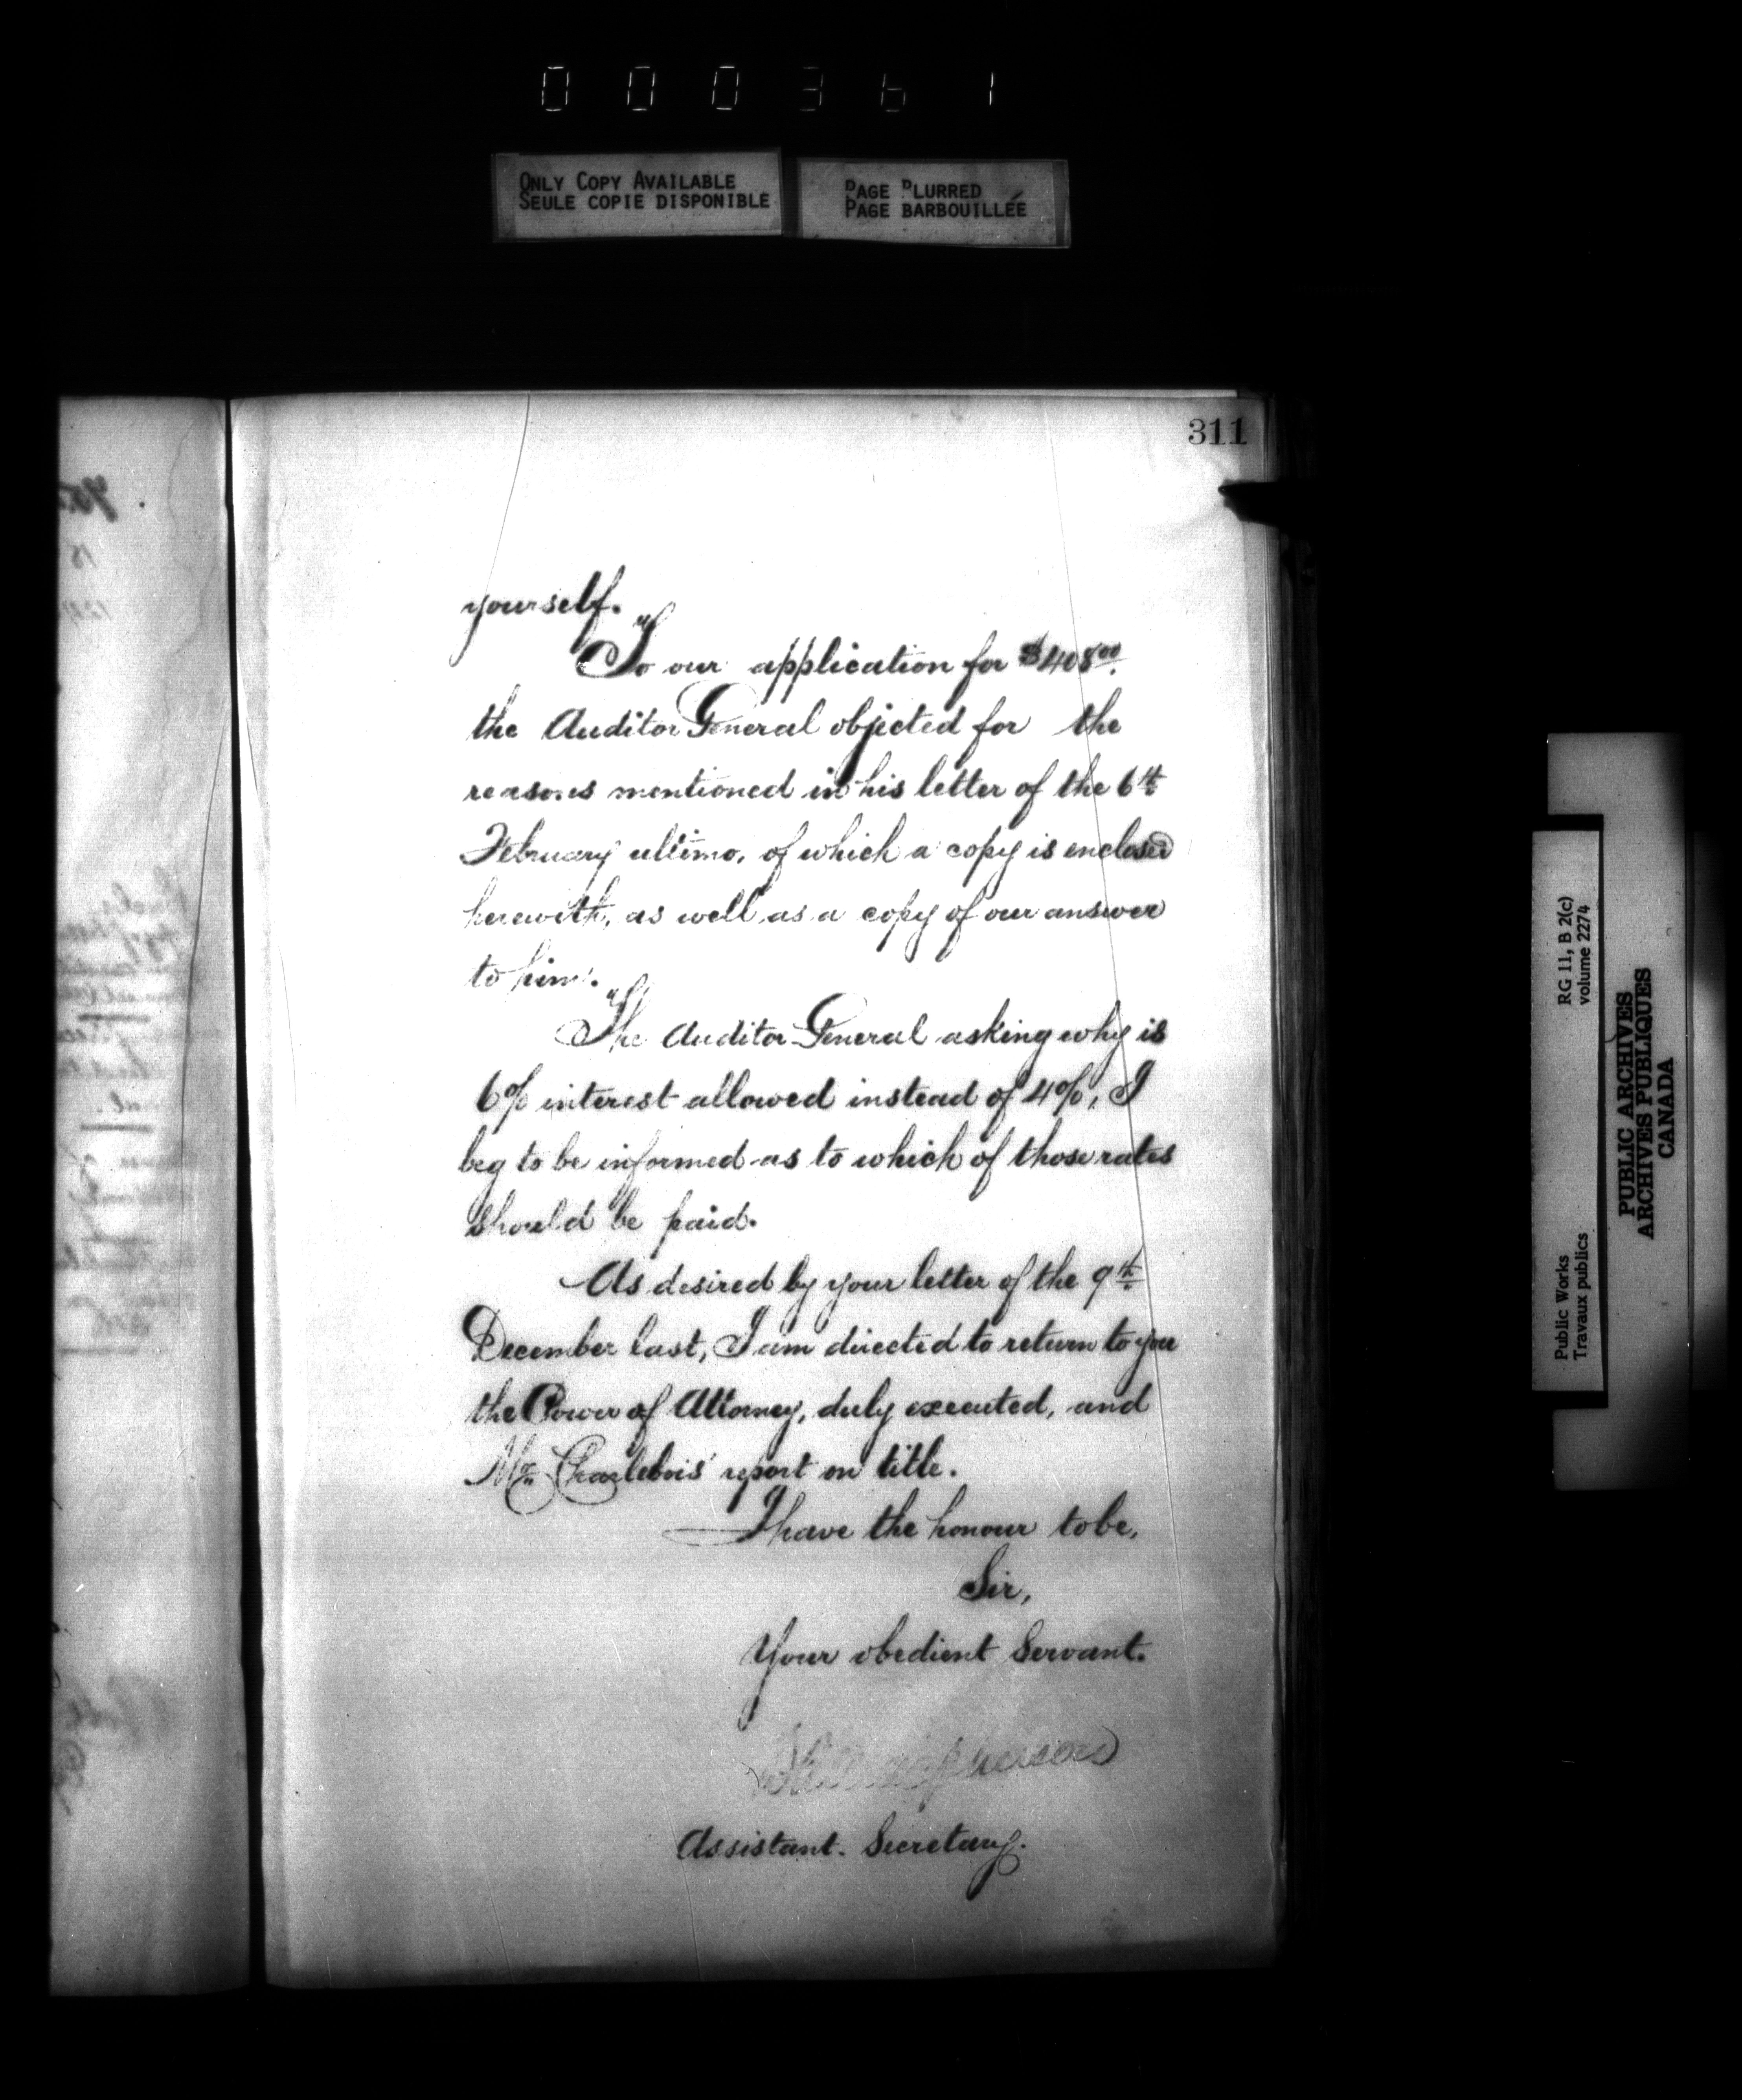 000361
ONLY COPY AVAILABLE
SEULE COPIE DISPONIBLE
PAGE BLURRED
PAGE BARBOUILLÉE
311
yourself.
"To our application for $408.00
the Auditor General objected for the
reasons mentioned in his letter of the 6th
February ultimo, of which a copy is enclosed
herewith, as well as a copy of our answer
to him.
"The Auditor General asking why is
6% interest allowed instead of 4%, I
beg to be informed as to which of those rates
should be paid.
As desired by your letter of the 9th
December last, I am directed to return to you
the Power of Attorney, duly executed, and
Mr. Charlebois' report on title.
I have the honour to be,
Sir,
Your obedient Servant.
Assistant. Secretary.
RG 11, B 2(c)
volume 2274
Public Works
Travaux publics
PUBLIC ARCHIVES
ARCHIVES PUBLIQUES
CANADA